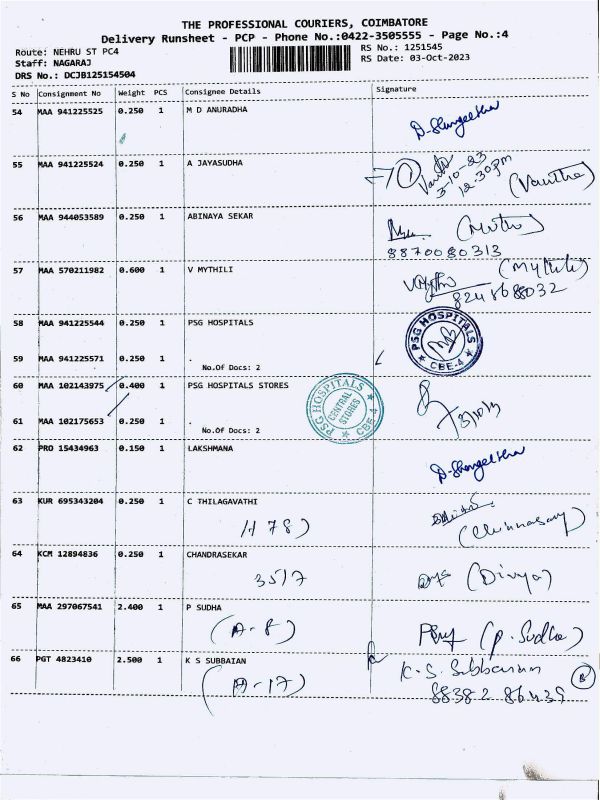 THE PROFESSIONAL COURIERS, COIMBATORE
Delivery Runsheet - PCP - Phone No.:0422-3505555 - Page No.:4
Route: NEHRU ST PC4 RS No.: 1251545
Staff: NAGARAJ RS Date: 03-Oct-2023
DRS No.: DCJB125154504
S No Consignment No Weight PCS Consignee Details Signature
54 MAA 941225525 0.250 1 M D ANURADHA
55 MAA 941225524 0.250 1 A JAYASUDHA
3-10-23
12.30pm
(Vanitha)
56 MAA 944053589 0.250 1 ABINAYA SEKAR
8870080313
57 MAA 570211982 0.600 1 V MYTHILI (Mythili)
58 MAA 941225544 0.250 1 PSG HOSPITALS
PSG HOSPITALS
CBE-4
59 MAA 941225571 0.250 1 .
No.Of Docs: 2
60 MAA 102143975 0.400 1 PSG HOSPITALS STORES
PSG HOSPITALS
CENTRAL STORES
CBE-4
61 MAA 102175653 0.250 1 .
No.Of Docs: 2
62 PRO 15434963 0.150 1 LAKSHMANA
63 KUR 695343204 0.250 1 C THILAGAVATHI
H 78) (Chinnasamy)
64 KCM 12894836 0.250 1 CHANDRASEKAR
35/7 (Divya)
65 MAA 297067541 2.400 1 P SUDHA
(A-8) (P. Sudha)
66 PGT 4823410 2.500 1 K S SUBBAIAN
(A-17) K.S. Subbaian
88382 86439